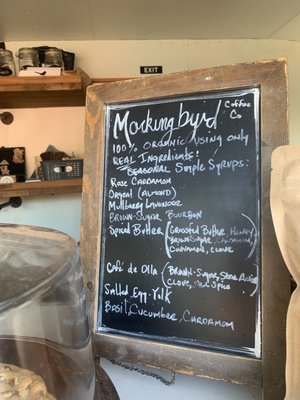 EXIT
Mockingbyrd Coffee Co
100% Organic Using only
Real Ingredients:
Seasonal Simple Syrups:
Rose Cardamom
Orgeat (Almond)
Mulberry Lavender
Brown-Sugar Bourbon
Spiced Butter (Grassfed Butter, Honey,
Brown-Sugar, Cardamom,
Cinnamon, Clove)
Café de Olla (Brown-Sugar, Star Anise,
Clove, Spice)
Salted Egg-Yolk
Basil, Cucumber, Cardamom